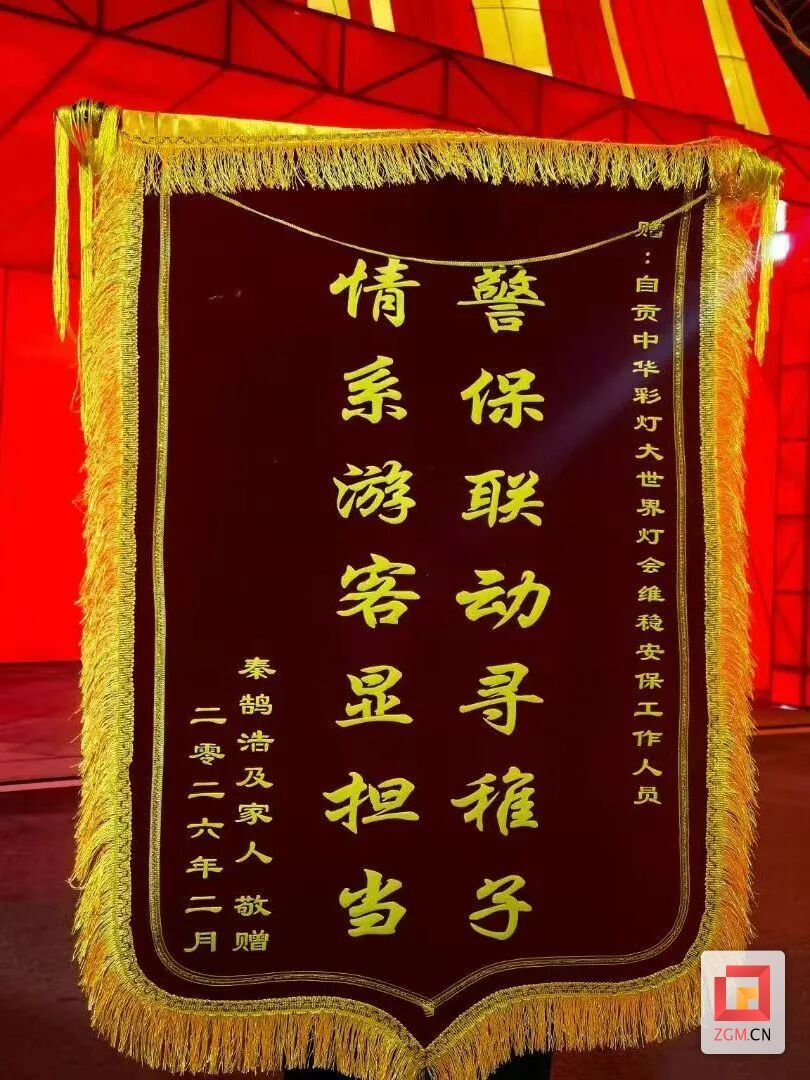 赠：自贡中华彩灯大世界灯会维稳安保工作人员
警保联动寻稚子
情系游客显担当
秦鹄浩及家人 敬赠
二零二六年二月
ZGM.CN